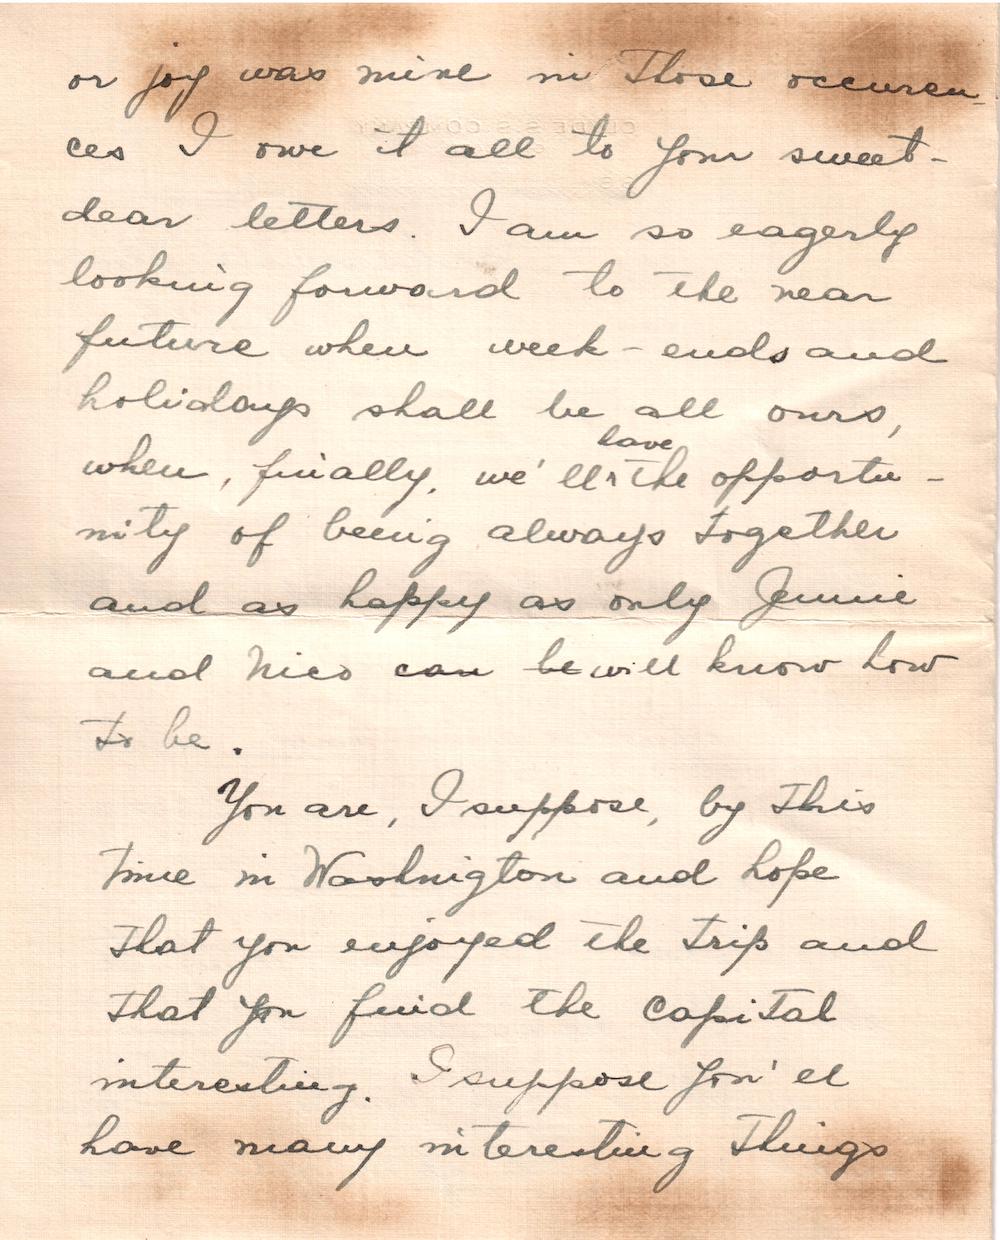 or joy was mine in those occuren-
ces I owe it all to your sweet-
dear letters. I am so eagerly
looking forward to the near
future when week-ends and
holidays shall be all ours,
when, finally, we'll have the opportu-
nity of being always together
and as happy as only Jennie
and Nico can be will know how
to be.
You are, I suppose, by this
time in Washington and hope
that you enjoyed the trip and
that you find the capital
interesting. I suppose you'll
have many interesting things